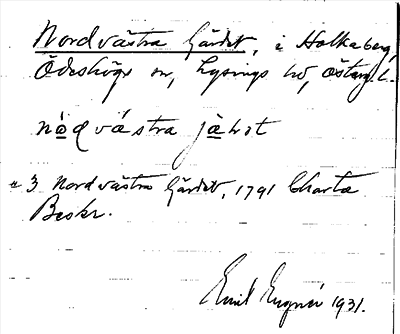 Nordvästra Gärdet, i Holkaberg,
Ödeshögs sn, Lysings hd, Östergl.
no̲dvästra jä̲ḷṣt
3 Nordvästra Gärdet, 1791 Charta
Beskr.
Emil 1931.